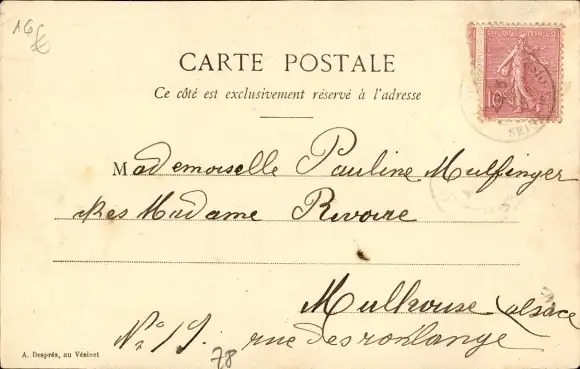 16 €
RÉPUBLIQUE FRANÇAISE
10c
CARTE POSTALE
Ce côté est exclusivement réservé à l'adresse
Mademoiselle Pauline Mulfinger
chez Madame Rivoire
Mulhouse, alsace
No 19. rue des
78
A. Desprès, au Vésinet